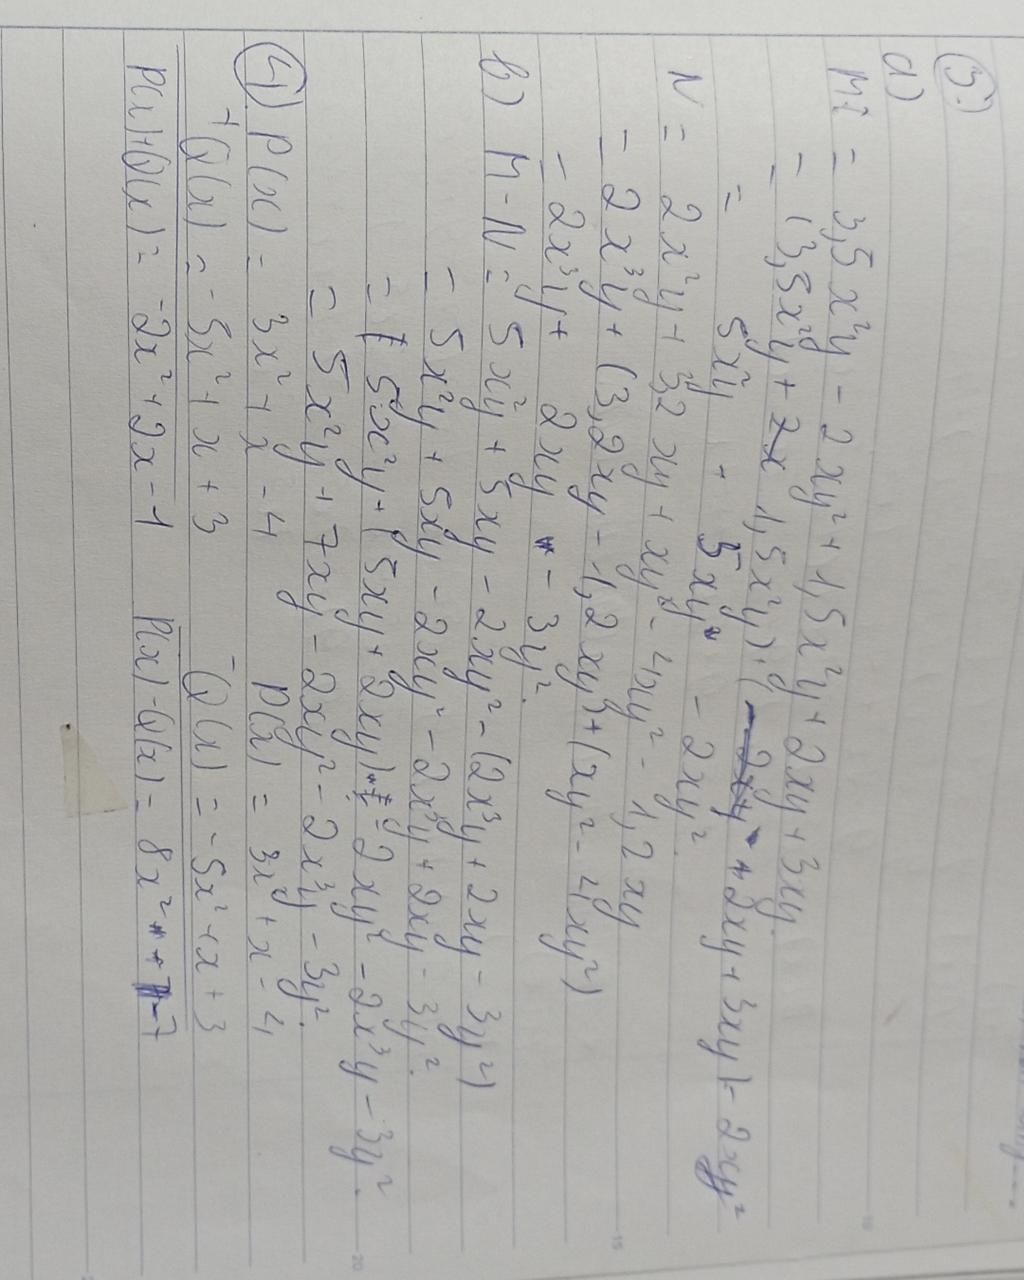 3.)
a)
M: = 3,5x²y - 2xy² + 1,5x²y + 2xy + 3xy
= (3,5x²y + 1,5x²y) + (2xy + 3xy) - 2xy²
= 5x²y + 5xy - 2xy².
N = 2x³y + 3,2xy + xy² - 4xy² - 1,2xy
= 2x³y + (3,2xy - 1,2xy) + (xy² - 4xy²)
= 2x³y + 2xy - 3y².
b) M - N = 5x²y + 5xy - 2xy² - (2x³y + 2xy - 3y²)
= 5x²y + 5xy - 2xy² - 2x³y + 2xy - 3y².
= 5x²y + (5xy + 2xy) - 2xy² - 2x³y - 3y².
= 5x²y + 7xy - 2xy² - 2x³y - 3y².
4) P(x) = 3x² + x - 4 P(x) = 3x² + x - 4
+ Q(x) = -5x² + x + 3 - Q(x) = -5x² + x + 3
P(x) + Q(x) = -2x² + 2x - 1 P(x) - Q(x) = 8x² - 7